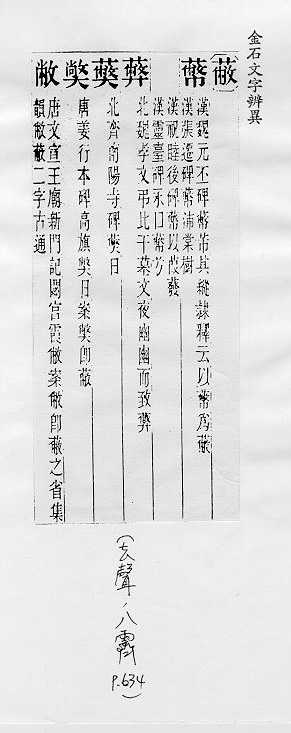 金石文字辨異
〔蔽〕
幣 漢魏元丕碑幣芾其縱隸釋云以幣為蔽
漢張遷碑幣沛棠樹
漢祝睦後碑幣以
漢靈臺碑 幣
北魏孝文弔比干墓文夜幽幽而致
北齊南陽寺碑 日
獘 唐姜行本碑高旗獘日案獘即蔽
敝 唐文宣王廟新門記閟宮霞敝案敝即蔽之省集
韻敝蔽二字古通
(去聲/八霽
P.634)